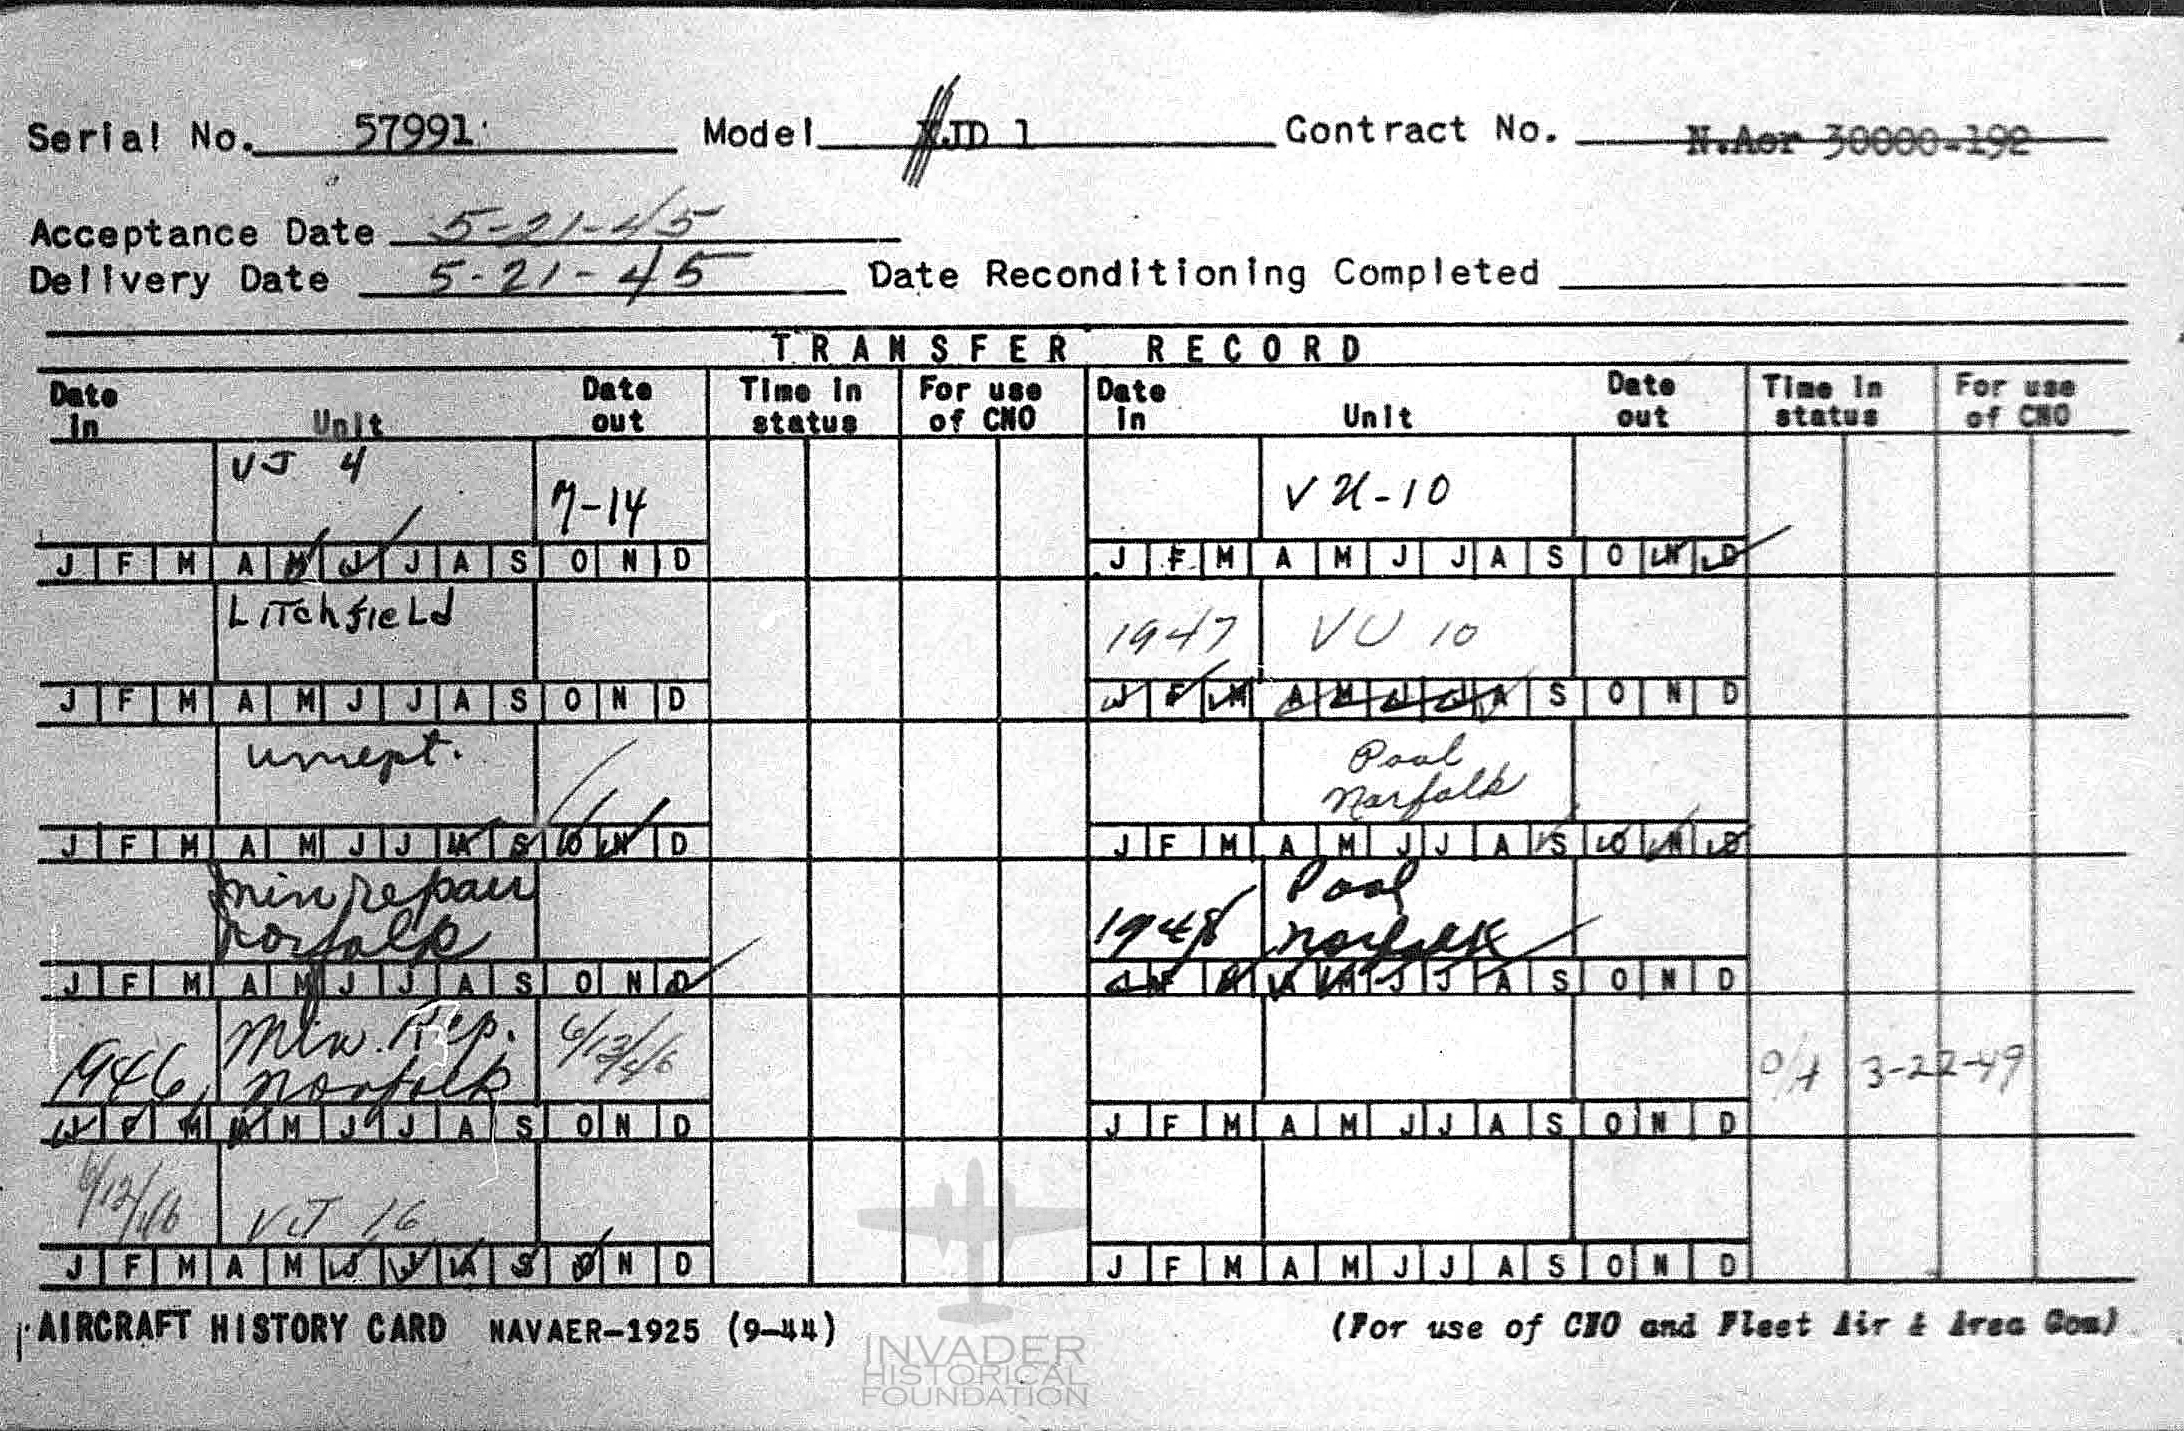 Serial No. 57991 Model XJD 1 Contract No. N.Aor 30000-192
Acceptance Date 5-21-45
Delivery Date 5-21-45 Date Reconditioning Completed
TRANSFER RECORD
Date in Unit Date out Time in status For use of CNO Date in Unit Date out Time in status For use of CNO
VJ 4 7-14
J F M A M J J A S O N D
Litchfield
J F M A M J J A S O N D
J F M A M J J A S O N D
min repair
norfolk
J F M A M J J A S O N D
1946 Min. Rep. 6/12/46
norfolk
J F M A M J J A S O N D
6/12/46 VJ 16
J F M A M J J A S O N D
VU-10
J F M A M J J A S O N D
1947 VU 10
J F M A M J J A S O N D
Pool
Norfolk
J F M A M J J A S O N D
1948 Pool
norfolk
J F M A M J J A S O N D
3-22-49
J F M A M J J A S O N D
J F M A M J J A S O N D
AIRCRAFT HISTORY CARD NAVAER-1925 (9-44) (For use of CNO and Fleet Air & Area Com)
INVADER
HISTORICAL
FOUNDATION